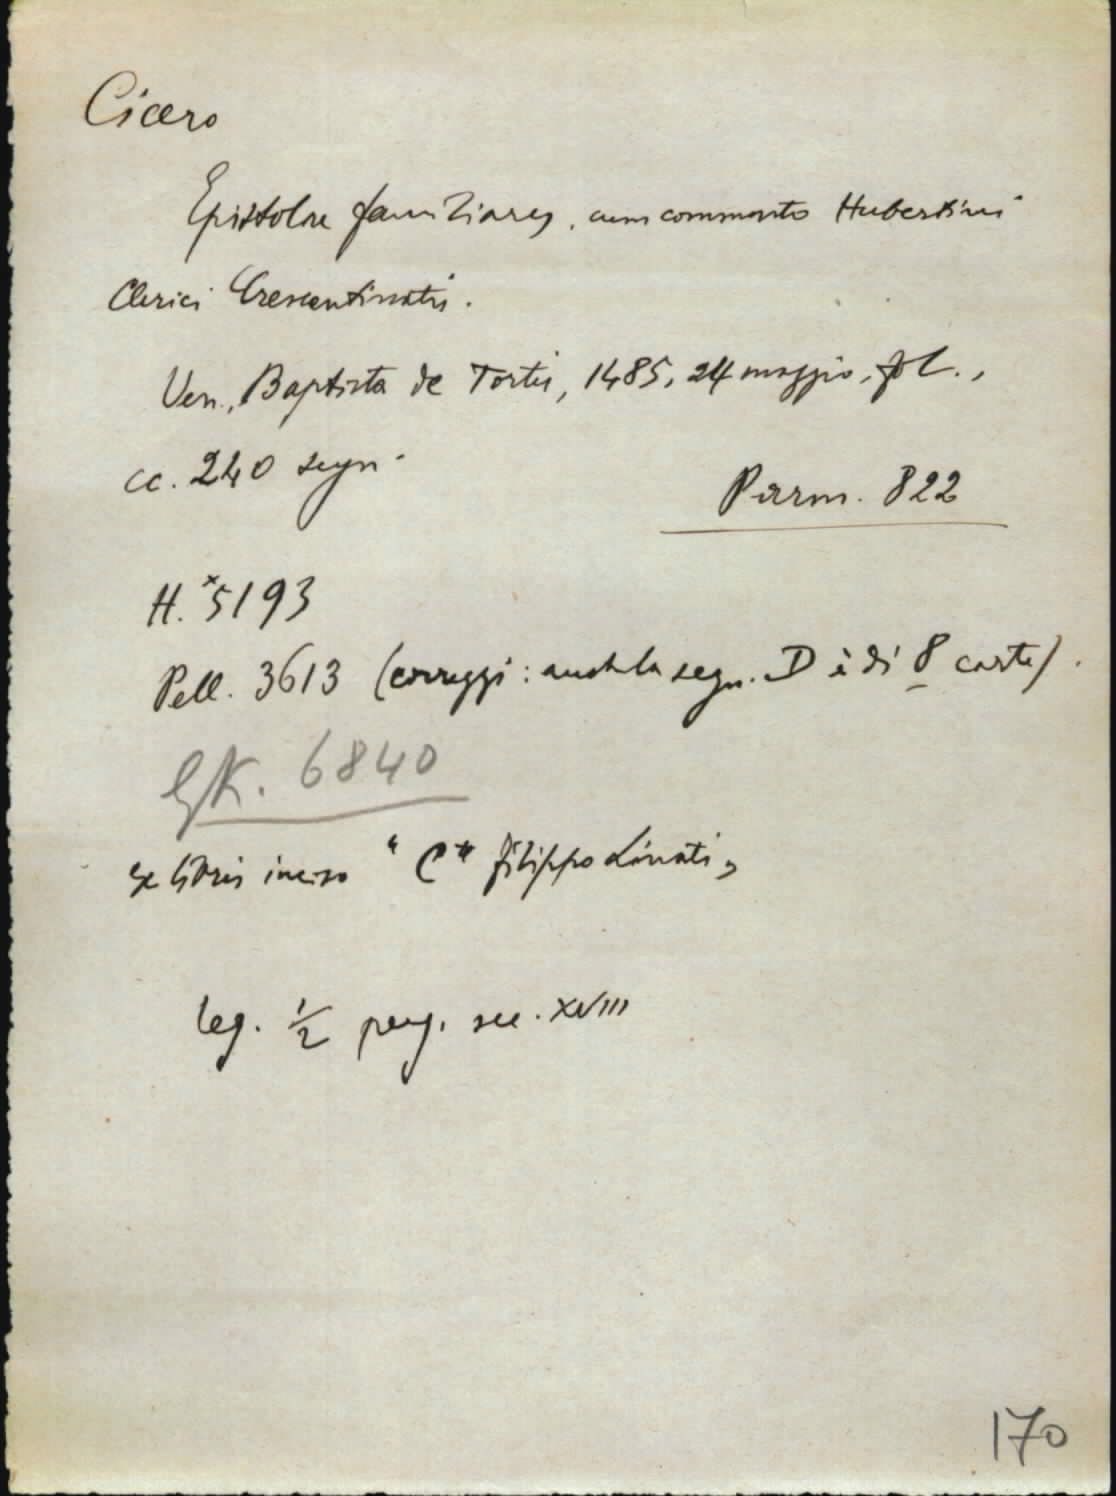 Cicero
Epistolae familiares, cum commento Hubertini
Clerici Crescentinatis.
Ven., Baptista de Tortis, 1485, 24 maggio, fol.,
cc. 240 segn.
Parm. 822
H. *5193
Pell. 3613 (correggi: anche la segn. D è di 8 carte).
GK. 6840
ex libris inciso "Cte Filippo Linati"
leg. 1/2 perg. sec. XVIII
170